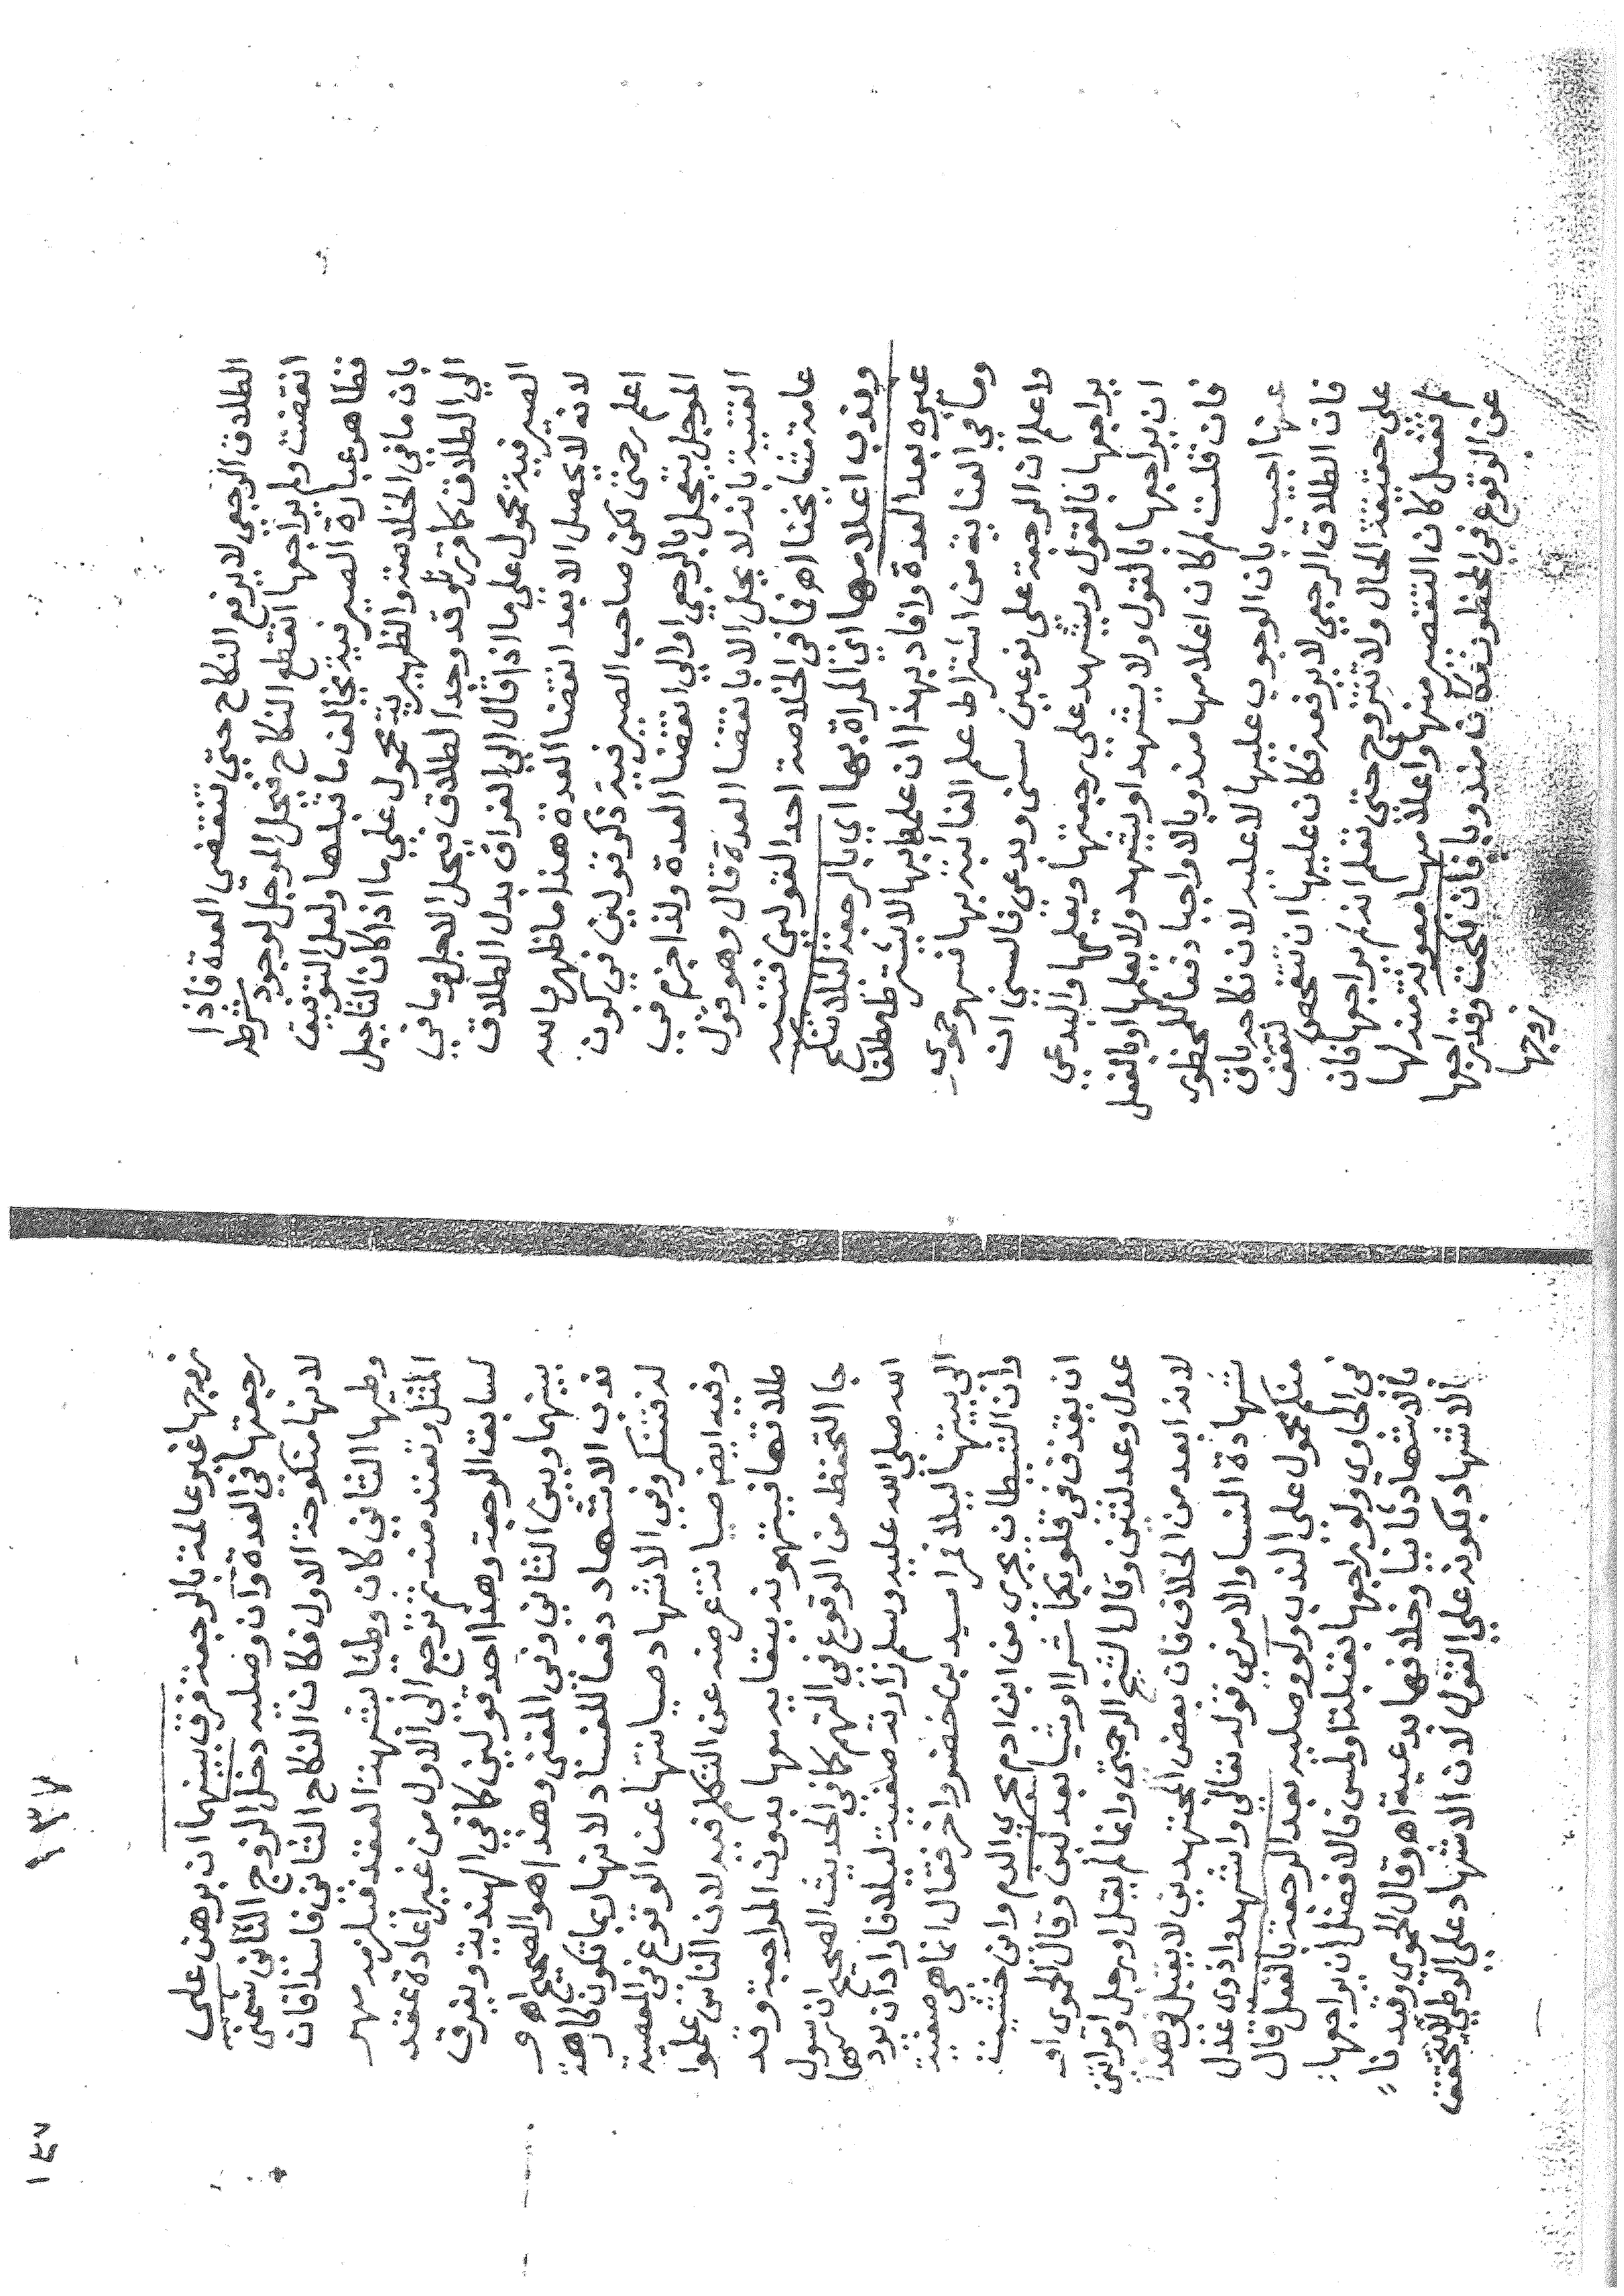 الطلاق الرجعي لا يرفع النكاح حتى تنقضي العدة فاذا
انقضت ولم يراجعها انقطع النكاح فيحل الموجل لوجود شرطه
فظاهر عبارة الصيرفية يخالف ما قبلها ولعل التوفيق
بان ما في الخلاصة والظهيرية محمول على ما اذا كان التاجيل
الي الطلاق كما قررتلو قد وجد الطلاق بحل الاجل وما في
الصيرفية محمول على ما اذا قال الي الفراق بدل الطلاق
لانه لا يحصل الا بعد انقضا العدة هذا ما ظهر والله
اعلم رحمتى لكن صاحب الصيرفية ذكر قولين في كون
الموجل يتعجل بالرجعي اوالي انقضا العدة ولذا جزم في
القنية بانه لا يحل الا بانقضا العدة قال وهو قول
عامة مشايخنا اهـ فما في الخلاصة احد القولين فتنبه
وندب اعلامها اي المراة بها اي بالرجعة لئلا تنكح
غيره بعد العدة وافاد بهذا ان علمها بها لا يشترط مطلقا
وما في العناية من اشتراط علم الغائبة بها فسهو حموي
واعلم ان الرجعة على نوعين سني وبدعي فالسني ان
يراجعها بالقول ويشهد على رجعتها ويعلمها والبدعي
ان يراجعها بالقول ولا يشهد او يشهد ولا يعلمها او بالفعل
فان قلت لم كان اعلامها مندوبا لا واجبا دفعا للمحظور
عنها اجيب بان الوجوب عليها لا عليه لان نكاحه باق
فان الطلاق الرجعي لا يرفعه فكان عليها ان تتفحص لتقف
على حقيقة الحال ولا تتزوج حتى تعلم انه لم يراجعها فان
لم تفعل كان التقصير منها واعلامها معونة منه لها
عن الوقوع في المحظور فكان مندوبا فان نكحت وقد راجعها
زوجها
١٣٧
١٤٧
زوجها غير عالمة بالرجعة فرق بينهما ان برهن على
رجعتها في العدة وان وصلية دخل الزوج الثاني شمني
لانها منكوحة الاول فكان النكاح الثاني فاسدا فان
وطيها الثاني كان وطئا بشبهة العقد فيلزمه مهر
المثل وتعتد منه ثم ترجع الى الاول من غير اعادة عقد
لسابقة الرجعة وهذا احد قولين كما في الهندية ويفرق
بينهما وبين الثاني وفي المغني وهذا هو الصحيح اهـ و
ندب الاشهاد دفعا للفساد لانها ربما تكون كارهة
له فتنكر وفي الاشهاد صيانتها عن الوقوع في المعصية
وفيه ايضا صيانة عرضه عن التكلم فيه لان الناس علموا
طلاقها فيتهمونه ببقايه معها بدون المراجعة وقد
جا التحفظ من الوقوع في التهم كما في الحديث الصحيح ان رسول
الله صلى الله عليه وسلم زارته صفية ليلا فاراد ان يردها
الى بيتها ليلا فمر اسيد بن خضير واخر فقال انما هي صفية
وان الشيطان يجري من ابن ادم مجرى الدم واني خشيت
ان يقذف في قلوبكما شرا او شيئا بعدلين وقال الحموي او
عدل وعدلتين وقال الشيخ الرحمتى وانما لم يقل او رجل وامراتين
لانه ابعد من الخلاف فان بعض المجتهدين لا يقبل في هذا
شهادة النسا والامر في قوله تعالي واشهدوا ذوي عدل
منكم محمول على الندب ولو وصلية بعد الرجعة بالفعل قال
في الحاوي ولو راجعها بقبلة او لمس فالافضل ان يراجعها
بالاشهاد ثانيا وخلافها بدعية اهـ وقال الحموي وقيدنا
الاشهاد بكونه على القول لان الاشهاد على الوطي لا يتحقق